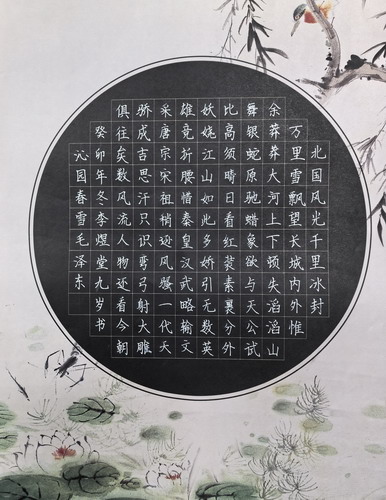 北国风光千里冰封
万里雪飘望长城内外惟
余莽莽大河上下顿失滔滔山
舞银蛇原驰蜡象欲与天公试
比高须晴日看红装素裹分外
妖娆江山如此多娇引无数英
雄竞折腰惜秦皇汉武略输文
采唐宗宋祖稍逊风骚一代天
骄成吉思汗只识弯弓射大雕
俱往矣数风流人物还看今朝
癸卯年冬李煜堂九岁书
沁园春雪毛泽东